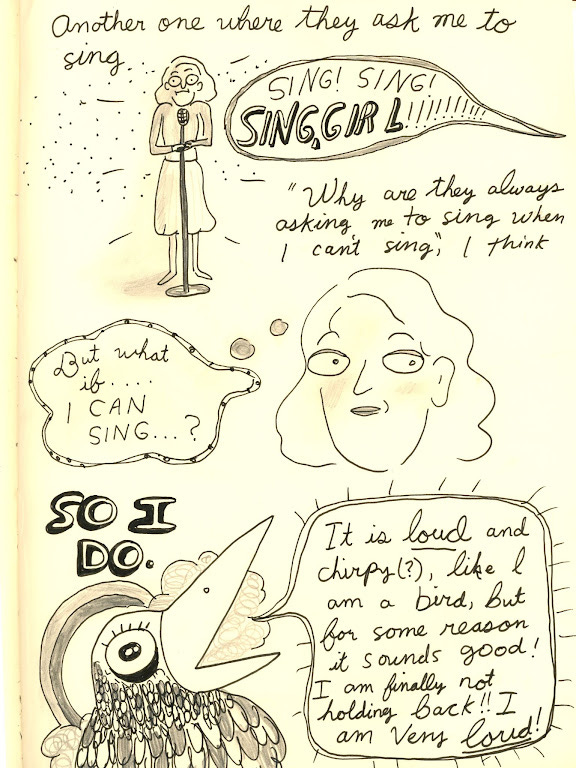 Another one where they ask me to
sing...
SING! SING!
SING, GIRL!!!!!!!!!
"Why are they always
asking me to sing when
I can't sing", I think
But what
if.....
I CAN
SING...?
SO I
DO.
It is loud and
chirpy(?), like I
am a bird, but
for some reason
it sounds good!
I am finally not
holding back!! I
am very loud!